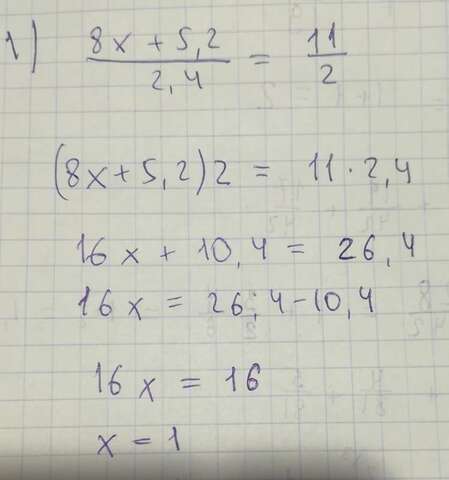 1) (8x + 5,2)/2,4 = 11/2
(8x + 5,2)2 = 11 · 2,4
16x + 10,4 = 26,4
16x = 26,4 - 10,4
16x = 16
x = 1